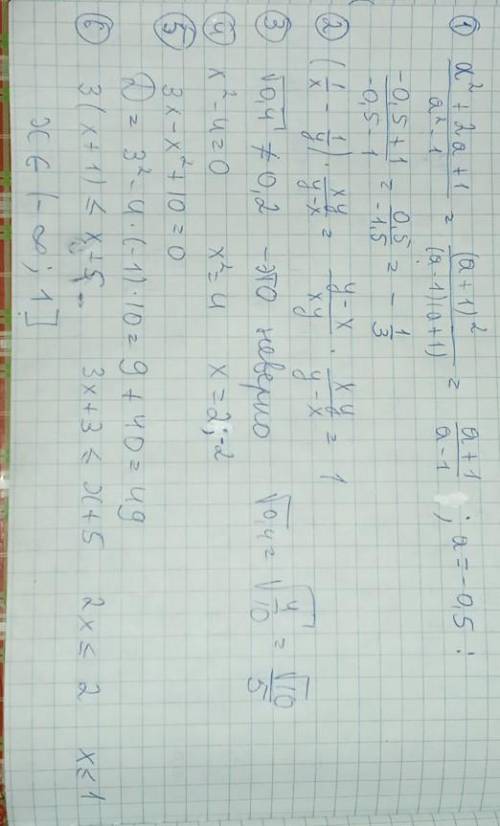 ① a² + 2a + 1 / a² - 1 = (a + 1)² / (a - 1)(a + 1) = a + 1 / a - 1 ; a = -0,5 :
-0,5 + 1 / -0,5 1 = 0,5 / -1,5 = - 1/3
② (1/x - 1/y) · xy / y-x = y-x / xy · xy / y-x = 1
③ √0,4 ≠ 0,2 - это неверно √0,4 = √4/10 = √10 / 5
④ x² - 4 = 0 x² = 4 x = 2; -2
⑤ 3x - x² + 10 = 0
D = 3² - 4 · (-1) · 10 = 9 + 40 = 49
⑥ 3(x + 1) ≤ x + 5 3x + 3 ≤ x + 5 2x ≤ 2 x ≤ 1
x ∈ (-∞; 1]